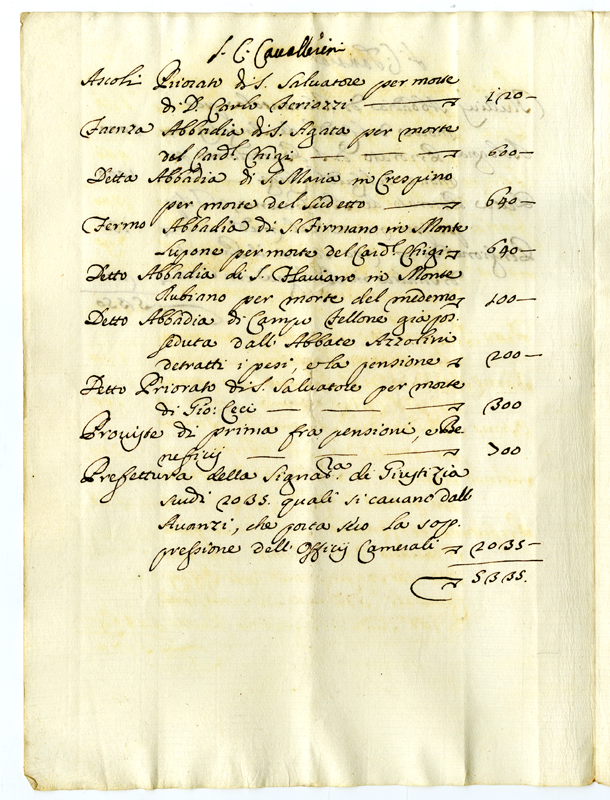 S. C. Cavallerini
Ascoli Priorato di S. Salvatore per morte
di D. Carlo Feriazzi 120
Faenza Abbadia di S. Agata per morte
del Card.l Chigi 600
Detta Abbadia di S. Maria in Crespino
per morte del Sudetto 640
Fermo Abbadia di S. Firmano in Monte
Lupone per morte del Card.l Chigi 640
Detto Abbadia di S. Flaviano in Monte
Rubiano per morte del medemo 100
Detto Abbadia di Campo Fellone già pos:
seduta dall' Abbate Azzolini
detratti i pesi, e la pensione 200
Detto Priorato di S. Salvatore per morte
di Gio: Ceci 300
Proviste di prima fra pensioni, e Be
neficij 700
Prefettura della Signat.ra di Giustizia
scudi 2035. quali si cavano dall'
Avanzi, che porta seco la sop:
pressione dell' Offitij Camerali 2035
5335.